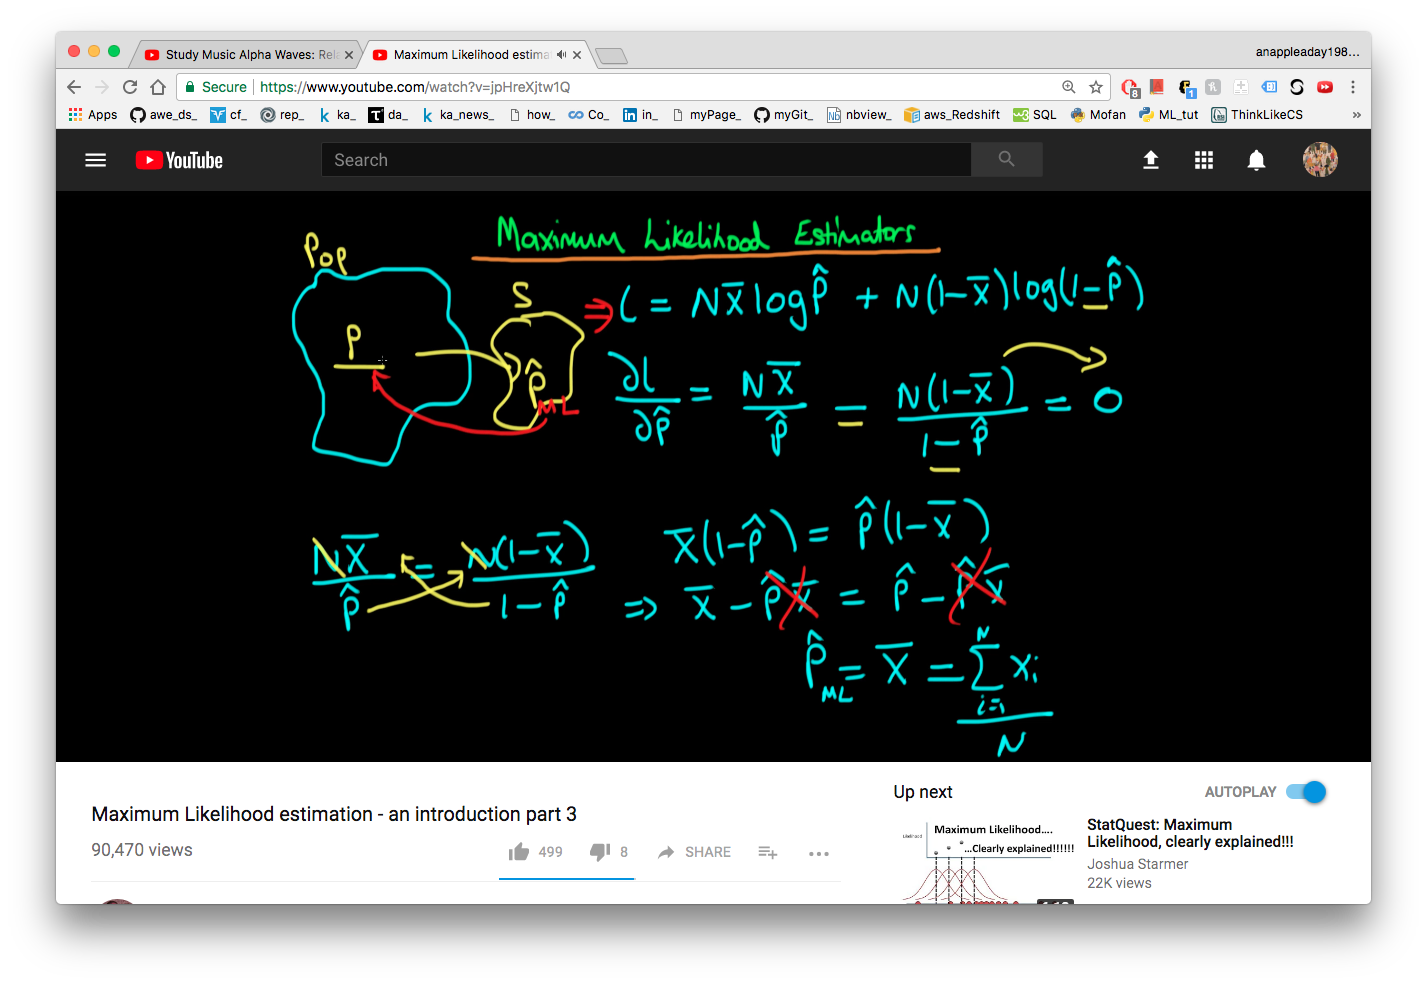 Study Music Alpha Waves: Rela
Maximum Likelihood estima
anappleaday198...
Secure https://www.youtube.com/watch?v=jpHreXjtw1Q
8
1
Apps awe_ds_ cf_ rep_ ka_ da_ ka_news_ how_ Co_ in_ myPage_ myGit_ nbview_ aws_Redshift SQL Mofan ML_tut ThinkLikeCS »
YouTube
Search
Maximum Likelihood Estimators
Pop
P
S
p̂ ML
⇒ l = N x̄ log p̂ + N(1-x̄) log(1-p̂)
∂l/∂p̂ = N x̄/p̂ = N(1-x̄)/(1-p̂) = 0
N x̄/p̂ = N(1-x̄)/(1-p̂)
x̄(1-p̂) = p̂(1-x̄)
⇒ x̄ - p̂x̄ = p̂ - p̂x̄
p̂ML = x̄ = ∑ᵢ₌₁ᴺ xᵢ / N
Maximum Likelihood estimation - an introduction part 3
90,470 views
499 8 SHARE
Up next
AUTOPLAY
Likelihood
Maximum Likelihood....
...Clearly explained!!!!!!
StatQuest: Maximum
Likelihood, clearly explained!!!
Joshua Starmer
22K views